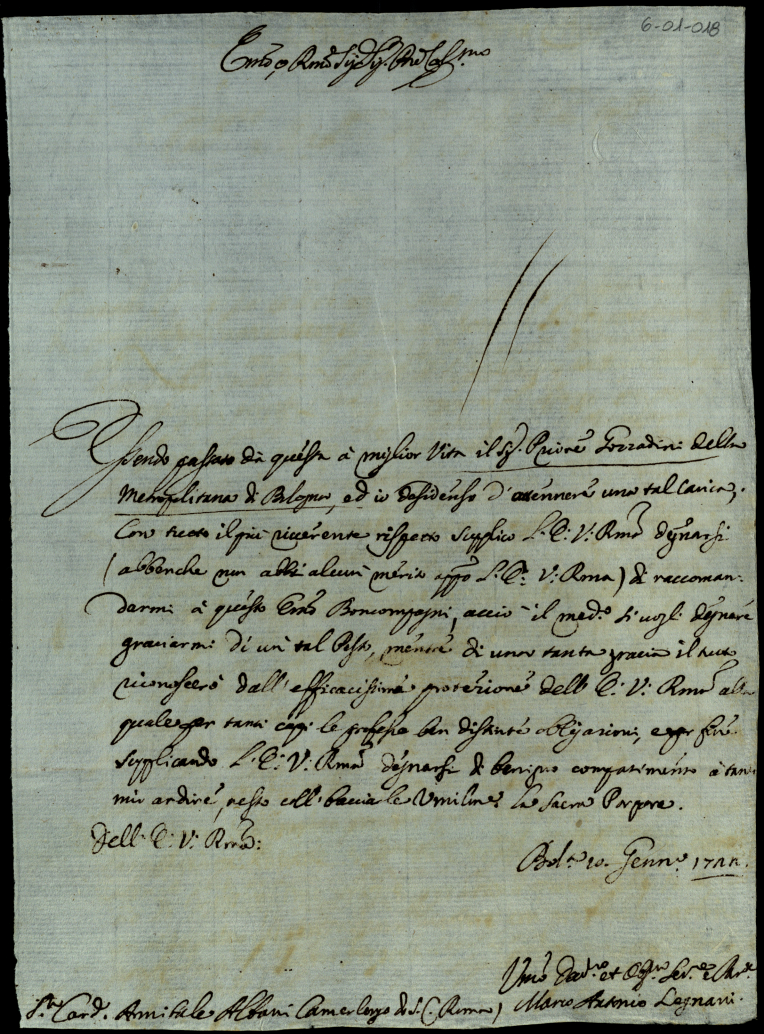 6-01-018
Emo, e Rmo Sig. Sig. Pne Col.mo
Essendo passato da questa à miglior Vita il Sig. Priore Gozzadini della
Metropolitana di Bologna, ed io desideroso d'ottennere una tal Carica,
Con tutto il più riverente rispetto supplico L. E. V. Rma degnarsi
(abbenche non abbi alcun merito appo L. E. V. Rma) di raccoman-
darmi à questo Emo Boncompagni, acciò il med.o si vogli degnare
graziarmi di un tal Posto, mentre di una tanta grazia il tutto
riconoscerò dall'efficacissima protezione dell'E. V. Rma alla
quale per tanti capi le professo ben distinte obligazioni, e per fine
supplicando L. E. V. Rma degnarsi di benigno compatimento à tan
mio ardire, resto coll bacciarle Umilme. la Sacra Porpora.
Dell. E. V. Rma:
Bol.a 10. Genn.o 1722.
Umo Devo.mo et Obl.mo Ser.e
Marco Antonio Legnani.
Card. Annibale Albani Camerlengo di S. C. (Roma)